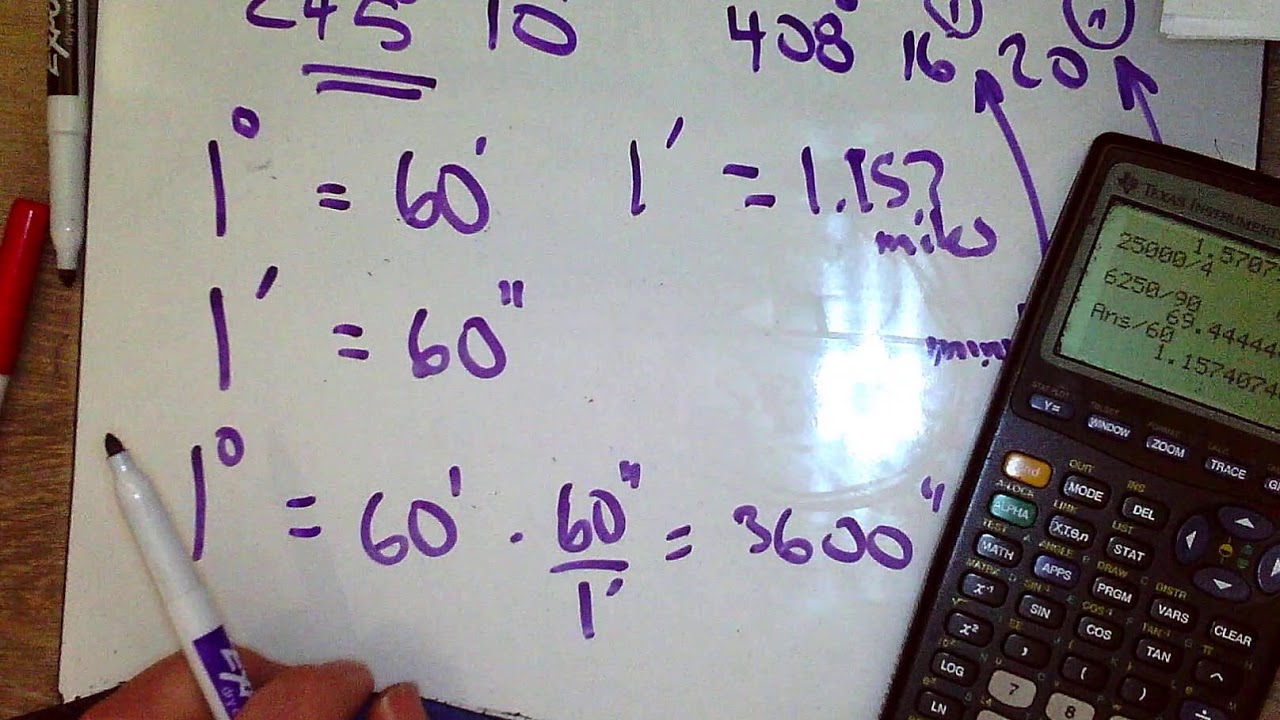 245 10
408° 16' 20"
1° = 60'
1' = 1.157
miles
1' = 60"
1° = 60' · 60" / 1' = 3600"
EXPO
TEXAS INSTRUMENTS
1.5707
25000/4
6250/90
69.444444
Ans/60
1.1574074
STAT PLOT
Y=
WINDOW
FORMAT
ZOOM
TRACE
2nd
OUT
MODE
INS
DEL
A-LOCK
ALPHA
LINK
X,T,θ,n
LIST
STAT
TEST
MATH
ANGLE
APPS
DRAW
PRGM
DISTR
VARS
CLEAR
MATRX
x⁻¹
SIN⁻¹
SIN
COS⁻¹
COS
TAN⁻¹
TAN
π
^
x²
,
(
)
÷
LOG
7
8
LN